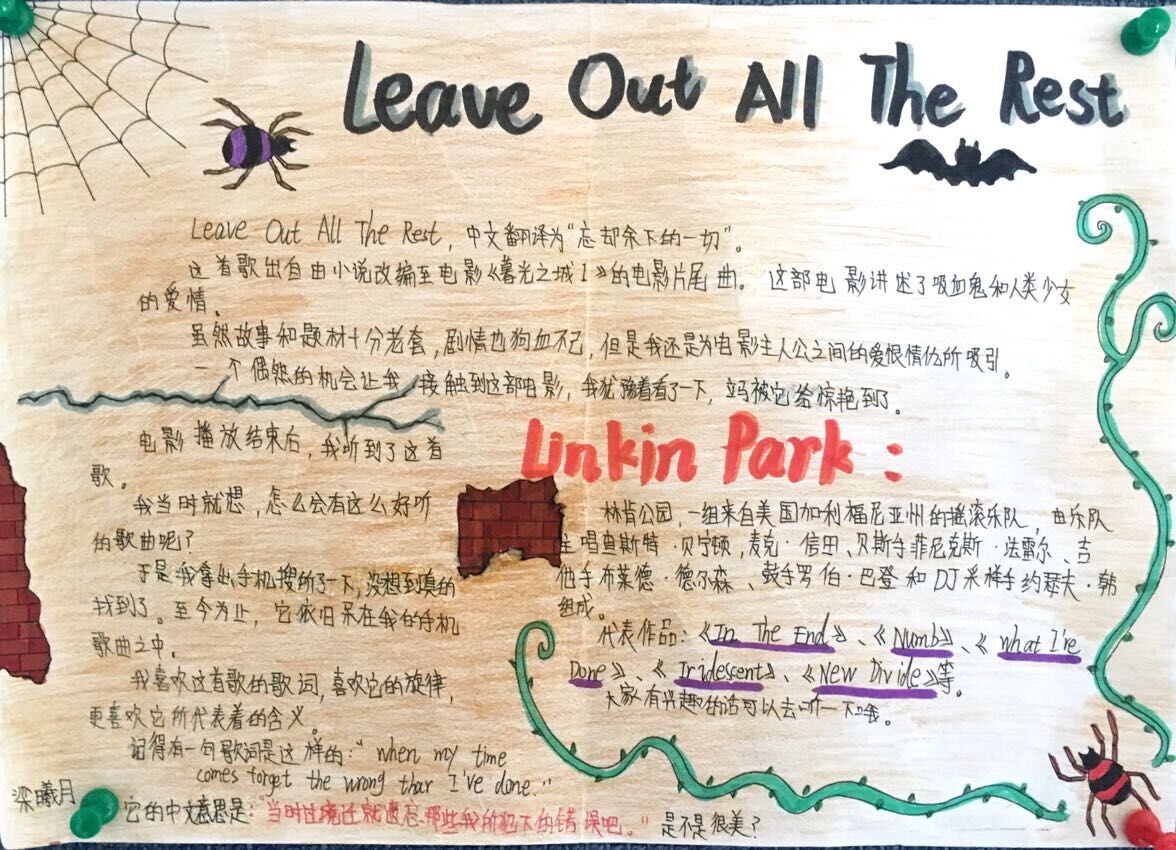 Leave Out All The Rest
Leave Out All The Rest, 中文翻译为“忘却余下的一切”。
这首歌出自由小说改编至电影《暮光之城1》的电影片尾曲。这部电影讲述了吸血鬼和人类少女
的爱情。
虽然故事和题材十分老套,剧情也狗血不已,但是我还是为电影主人公之间的爱恨情仇所吸引。
一个偶然的机会让我接触到这部电影,我犹豫着看了一下,立马被它给惊艳到了。
电影播放结束后,我听到了这首
歌。
我当时就想,怎么会有这么好听
的歌曲呢?
于是我拿出手机搜索了一下,没想到真的
找到了。至今为止,它依旧呆在我的手机
歌曲之中。
我喜欢这首歌的歌词,喜欢它的旋律,
更喜欢它所代表着的含义。
记得有一句歌词是这样的:“when my time
comes forget the wrong that I've done.”
它的中文意思是:“当时过境迁就遗忘那些我所犯下的错误吧。”是不是很美?
梁曦月
Linkin Park:
林肯公园,一组来自美国加利福尼亚州的摇滚乐队,由乐队
主唱查斯特·贝宁顿,麦克·信田、贝斯手菲尼克斯·法雷尔、吉
他手布莱德·德尔森、鼓手罗伯·巴登和DJ采样手约瑟夫·韩
组成。
代表作品:《In The End》、《Numb》、《what I've
Done》、《Iridescent》、《New Divide》等。
大家有兴趣的话可以去听一下哦。